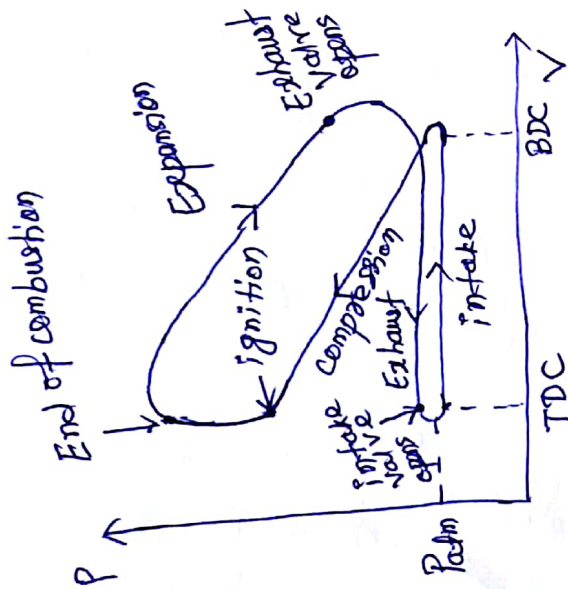 P
End of combustion
Expansion
Exhaust
valve
opens
ignition
compression
Exhaust
intake
valve
opens
intake
Patm
TDC
BDC
V